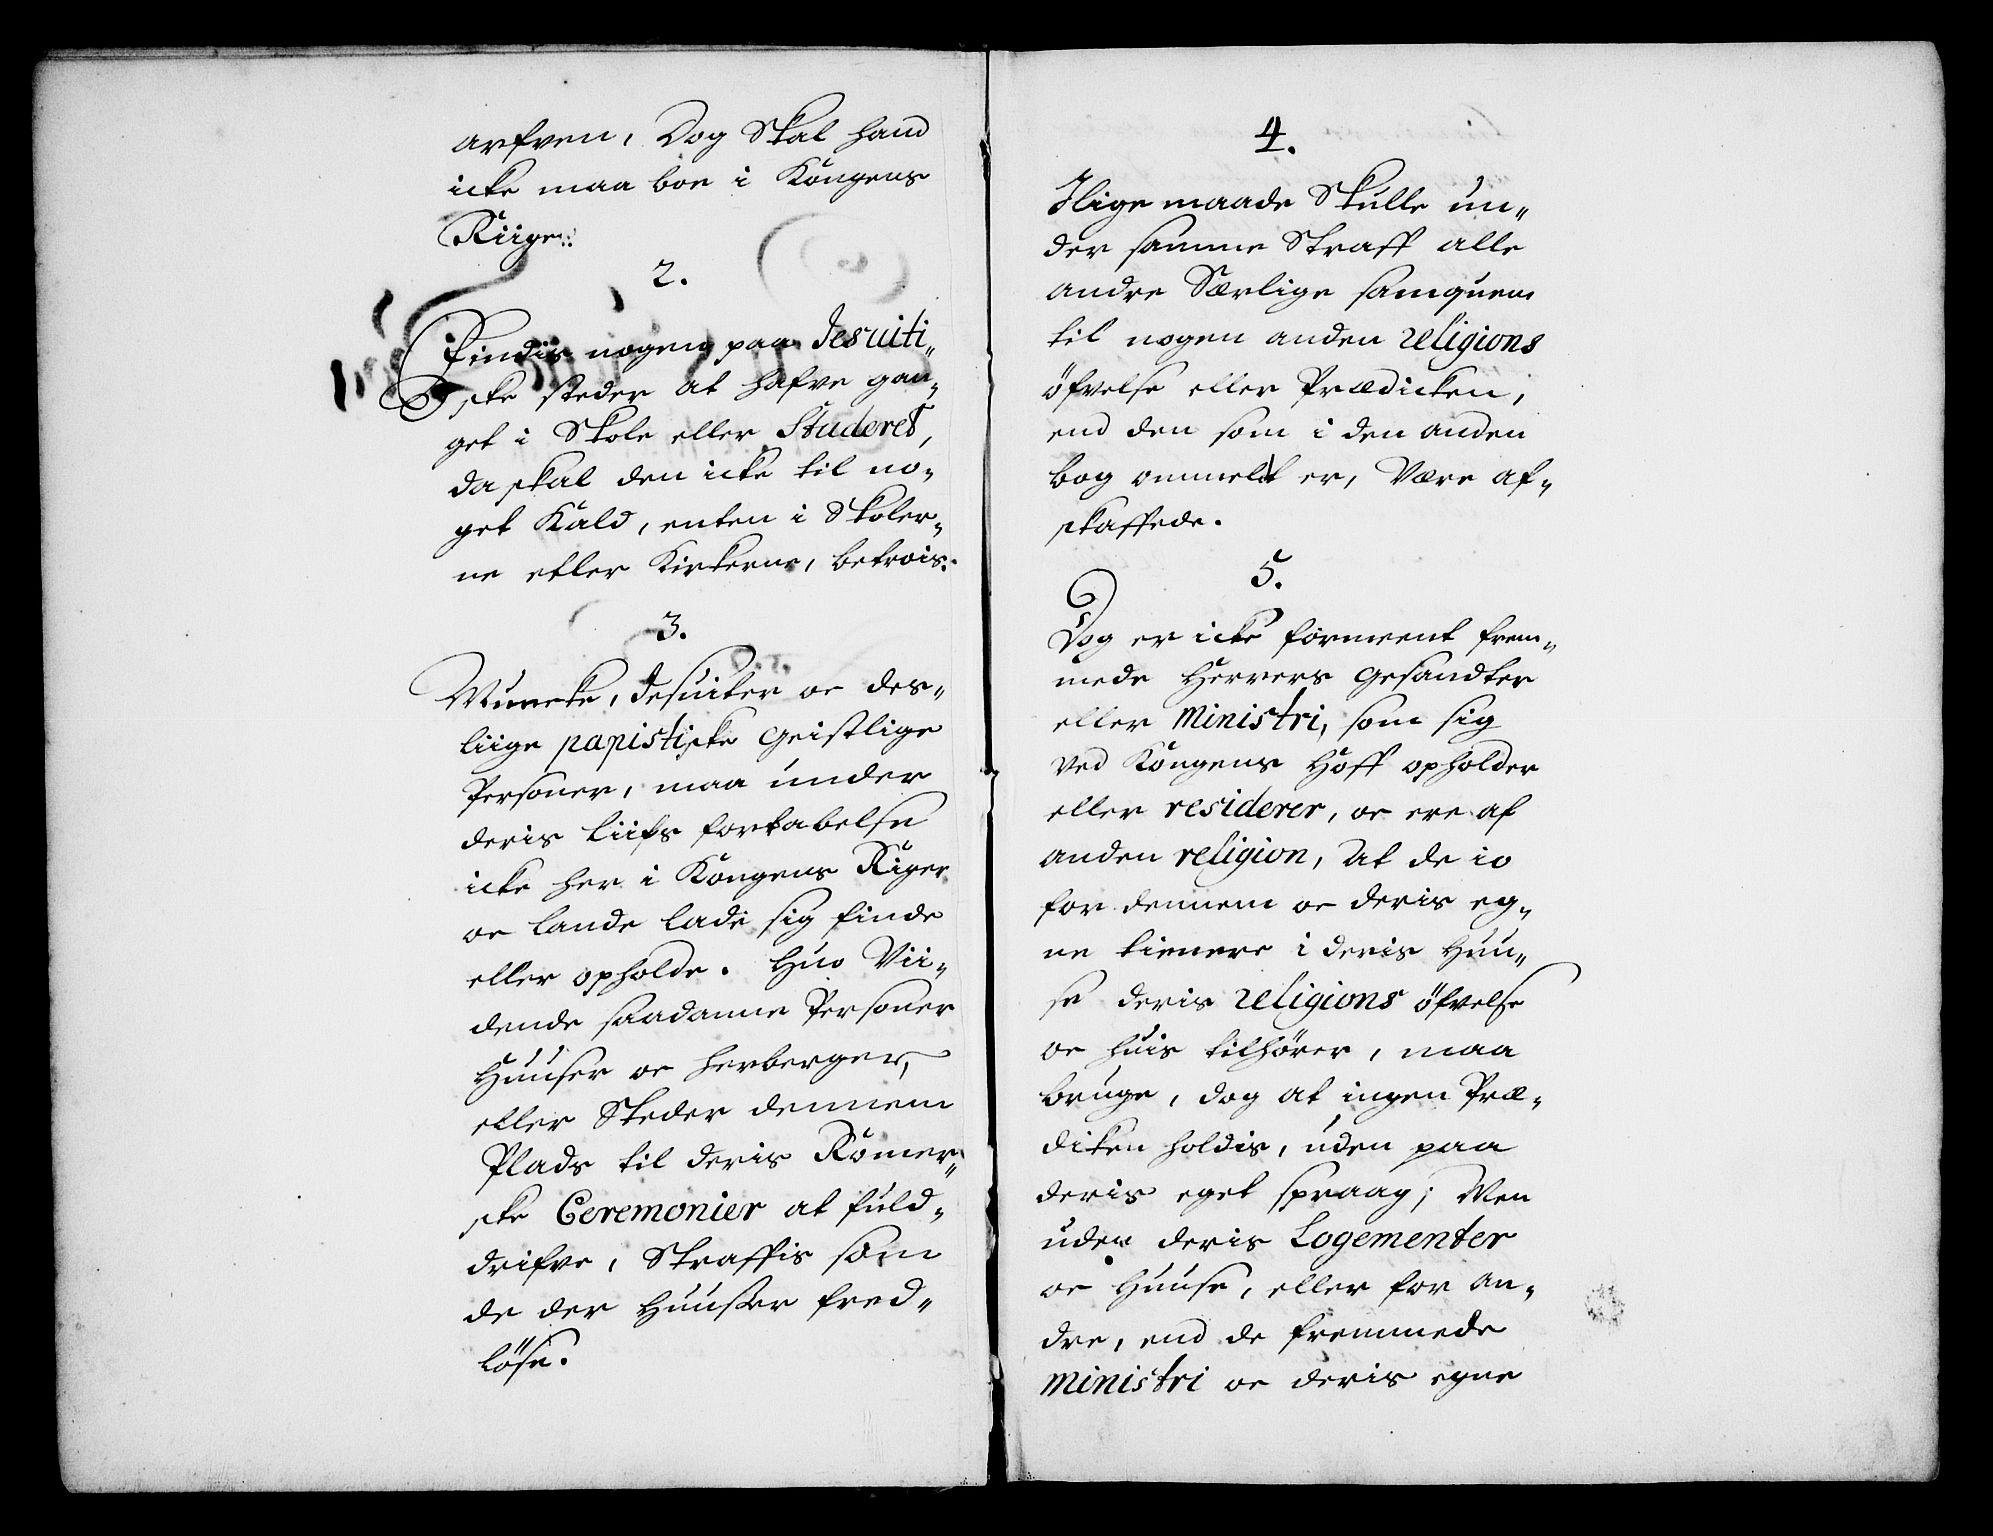 arfven, Dog Skal hand
icke maa boe i Kongens
Riiger.
2.
Findis nogen paa Jesuiti„
ske steder at hafve gan„
get i Skole eller Studeret,
da skal den icke til no„
get Kald, enten i Skoler„
ne eller Kirkerne, betrois.
3.
Muncke, Jesuiter oc des„
liige papistiske Geistlige
Personer, maa under
deris Liifs fortabelse
icke her i Kongens Riger
oc Lande lade sig finde
eller opholde. Huo Vii„
dende saadanne Personer
Huuser oc herberger,
eller Steder dennem
Plads til deris Romer„
ske Ceremonier at fuld„
drifve, Straffis som
de der Huuser fred„
løse.
4.
Jlige maade Skulle un„
der samme Straff alle
andre Særlige samquem
til nogen anden religions
öfvelse eller Prædicken,
end den som i den anden
bog ommelt er, Være af„
skaffede.
5.
Dog er icke forment frem„
mede Herrers Gesandter
eller Ministri, som sig
ved Kongens Hoff opholder
eller residerer, oc ere af
anden religion, At de io
for dennem oc deris eg„
ne tienere i deris Huu„
se deris religions öfvelse
oc huis tilhörer, maa
bruge, dog at ingen Præ„
diken holdis, uden paa
deris eget spraag; Men
uden deris Logementer
oc Huuse, eller for an„
dre, end de fremmede
Ministri oc deris egne